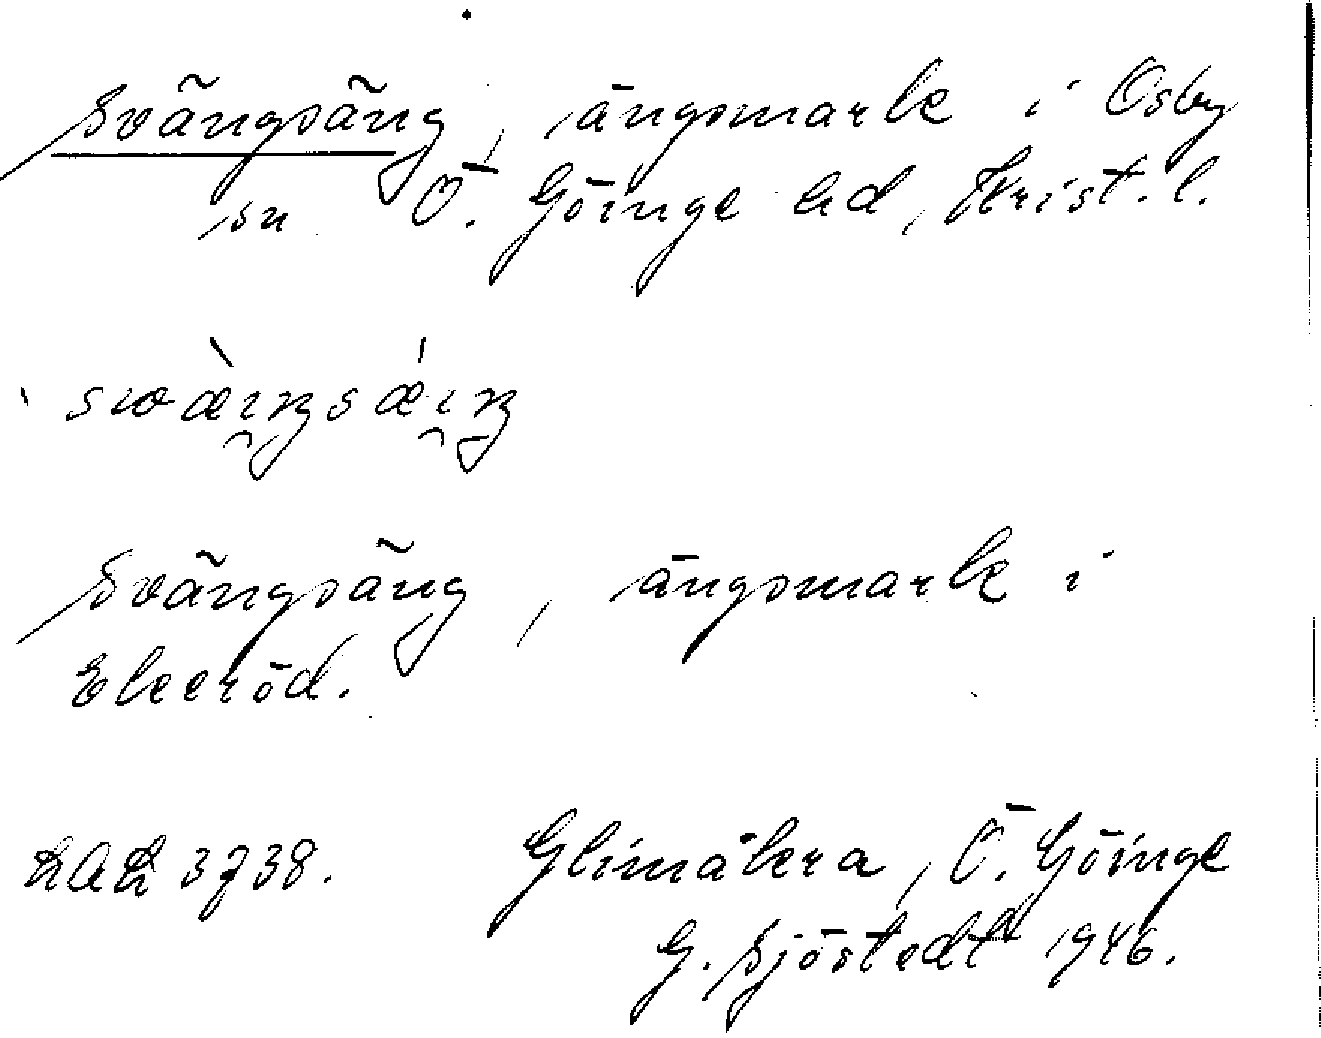 Svängsäng, ängsmark i Osby
sn Ö. Göinge hd, Krist. l.
Svängsäng, ängsmark i
Ekeröd.
LAL 3738. Glimåkra, Ö. Göinge
G. Sjöstedt 1946.